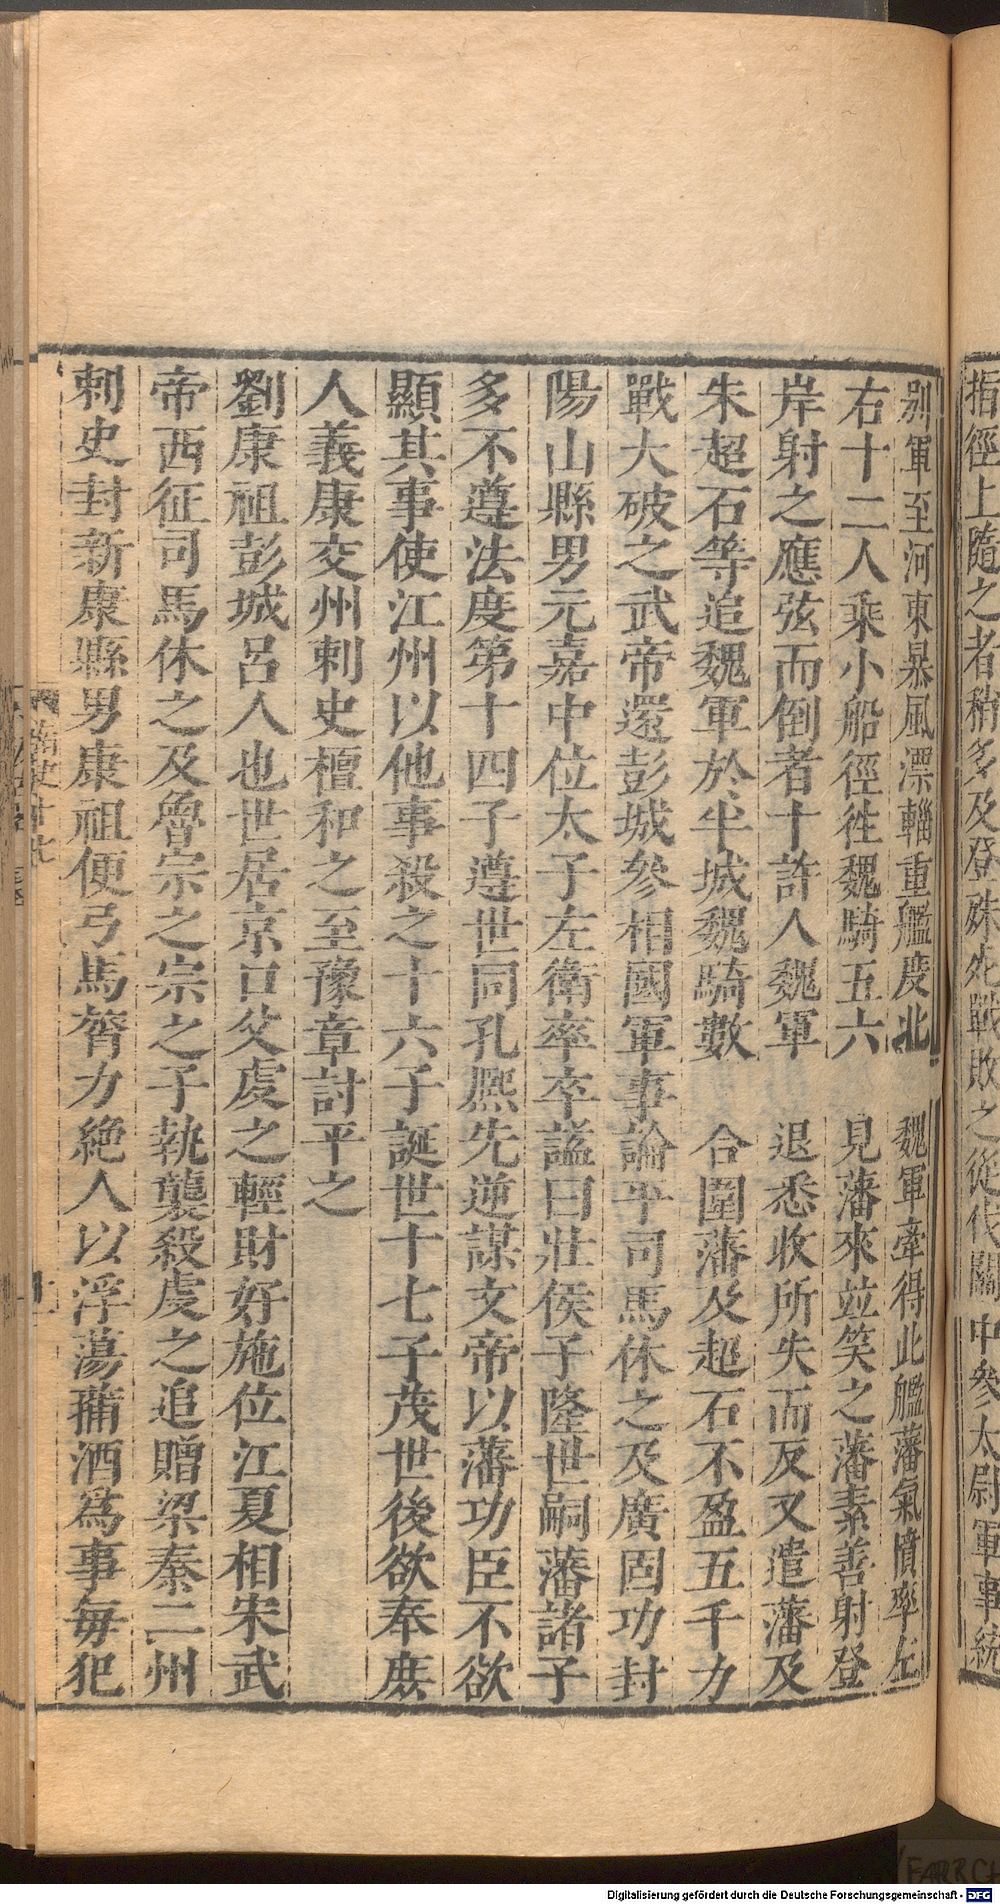 指徑上隨之者稍多及登殊死戰敗之從伐關中參太尉軍事統
别軍至河東暴風漂輜重艦度北魏軍牽得此艦藩氣憤率左
右十二人乘小船徑徃魏騎五六見藩來並笑之藩素善射登
岸射之應弦而倒者十許人魏軍退悉收所失而反又遣藩及
朱超石等追魏軍於半城魏騎數合圍藩及超石不盈五千力
戰大破之武帝還彭城參相國軍事論平司馬休之及廣固功封
陽山縣男元嘉中位太子左衛率卒謚曰壯侯子隆世嗣藩諸子
多不遵法度第十四子遵世同孔熈先逆謀文帝以藩功臣不欲
顯其事使江州以他事殺之十六子誕世十七子茂世後欲奉庶
人義康交州刺史檀和之至豫章討平之
劉康祖彭城呂人也世居京口父虔之輕財好施位江夏相宋武
帝西征司馬休之及魯宗之宗之子執襲殺虔之追贈梁秦二州
刺史封新康縣男康祖便弓馬膂力絶人以浮蕩蒱酒爲事每犯
Digitalisierung gefördert durch die Deutsche Forschungsgemeinschaft - DFG